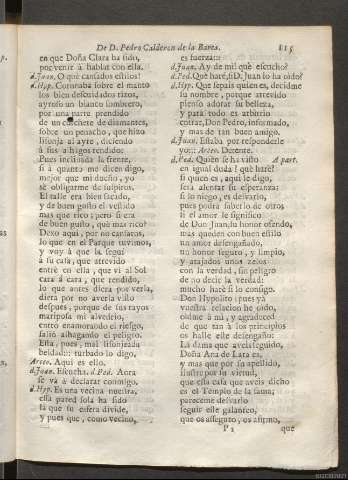 De D. Pedro Calderon de la Barca. 115
en que Doña Clara ha sido,
por venir à hablar con ella.
d. Juan. O què cansados estilos!
d. Hyp. Coronaba sobre el manto
los bien descuidados rizos,
ayroso un blanco sombrero,
por una parte prendido
de un corchete de diamantes,
sobre un penacho, que hizo
lisonja al ayre, diciendo
à sus alhagos rendido:
Pues inclinada la frente,
si à quanto me dicen digo,
mejor que mi dueño, yo
sè obligarme de suspiros.
El talle era bien sacado,
y de buen gusto el vestido
mas que rico; pero si era
de buen gusto, què mas rico?
Dexo aqui, por no cansaros,
lo que en el Parque tuvimos,
y voy à que la seguì
à su casa, que atrevido
entrè en ella, que vi al Sol
cara à cara, que rendido,
lo que antes diera por verla,
diera por no averla visto
despues, porque de sus rayos
mariposa mi alvedrio,
entrò enamorando el riesgo,
saliò alhagando el peligro.
Ella, pues, mal lisonjeada
beldad::: turbado lo digo,
Arceo. Aqui es ello.
d. Juan. Escucha. d. Ped. Aora
se và à declarar conmigo.
d. Hyp. Es una vecina nuestra,
essa pared sola ha sido
la que su esfera divide,
y pues que, como vecino,
es fuerza:::
d. Juan. Ay de mi! què escucho?
d. Ped. Què harè, si D. Juan lo ha oìdo?
d. Hyp. Que sepais quien es, decidme
su nombre, porque atrevido
pienso adorar su belleza,
y para todo es arbitrio
entrar, Don Pedro, informado,
y mas de tan buen amigo.
d. Juan. Estaba por responderle
yo::: Arceo. Detente.
d. Ped. Quien se ha visto A part.
en igual duda? què harè?
si quien es, aqui le digo,
serà alentar su esperanza;
si lo niego, es desvario,
pues podrà saberlo de otro;
si el amor le significo
de Don Juan, su honor ofendo,
mas queden con buen estilo
un amor desengañado,
un honor seguro, y limpio,
y atajados unos zelos
con la verdad, sin peligro
de no decir la verdad:
mucho harè si lo consigo.
Don Hypolito, pues yà
vuestra relacion he oìdo,
oìdme à mi, y agradeced
de que tan à los principios
os halle esse desengaño:
La dama que aveis seguido,
Doña Ana de Lara es,
y mas que por su apellido,
ilustre por la virtud,
que essa casa que aveis dicho
es el Templo de la fama;
pareceme desvario
seguir esse galanteo,
que os asseguro, os afirmo,
P 2 que